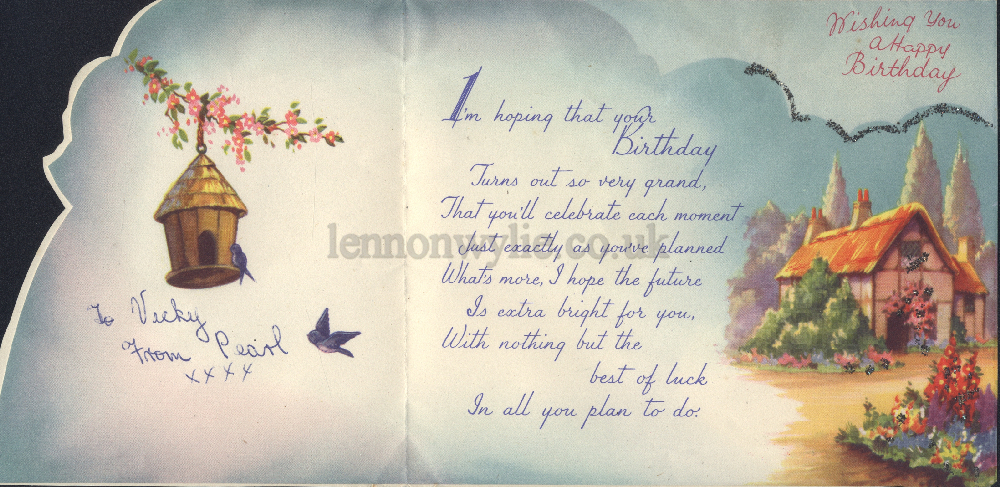 To Vicky
From Pearl
xxxx
I'm hoping that your
Birthday
Turns out so very grand,
That you'll celebrate each moment
Just exactly as you've planned
What's more, I hope the future
Is extra bright for you,
With nothing but the
best of luck
In all you plan to do.
Wishing You
A Happy
Birthday
lennonwylie.co.uk